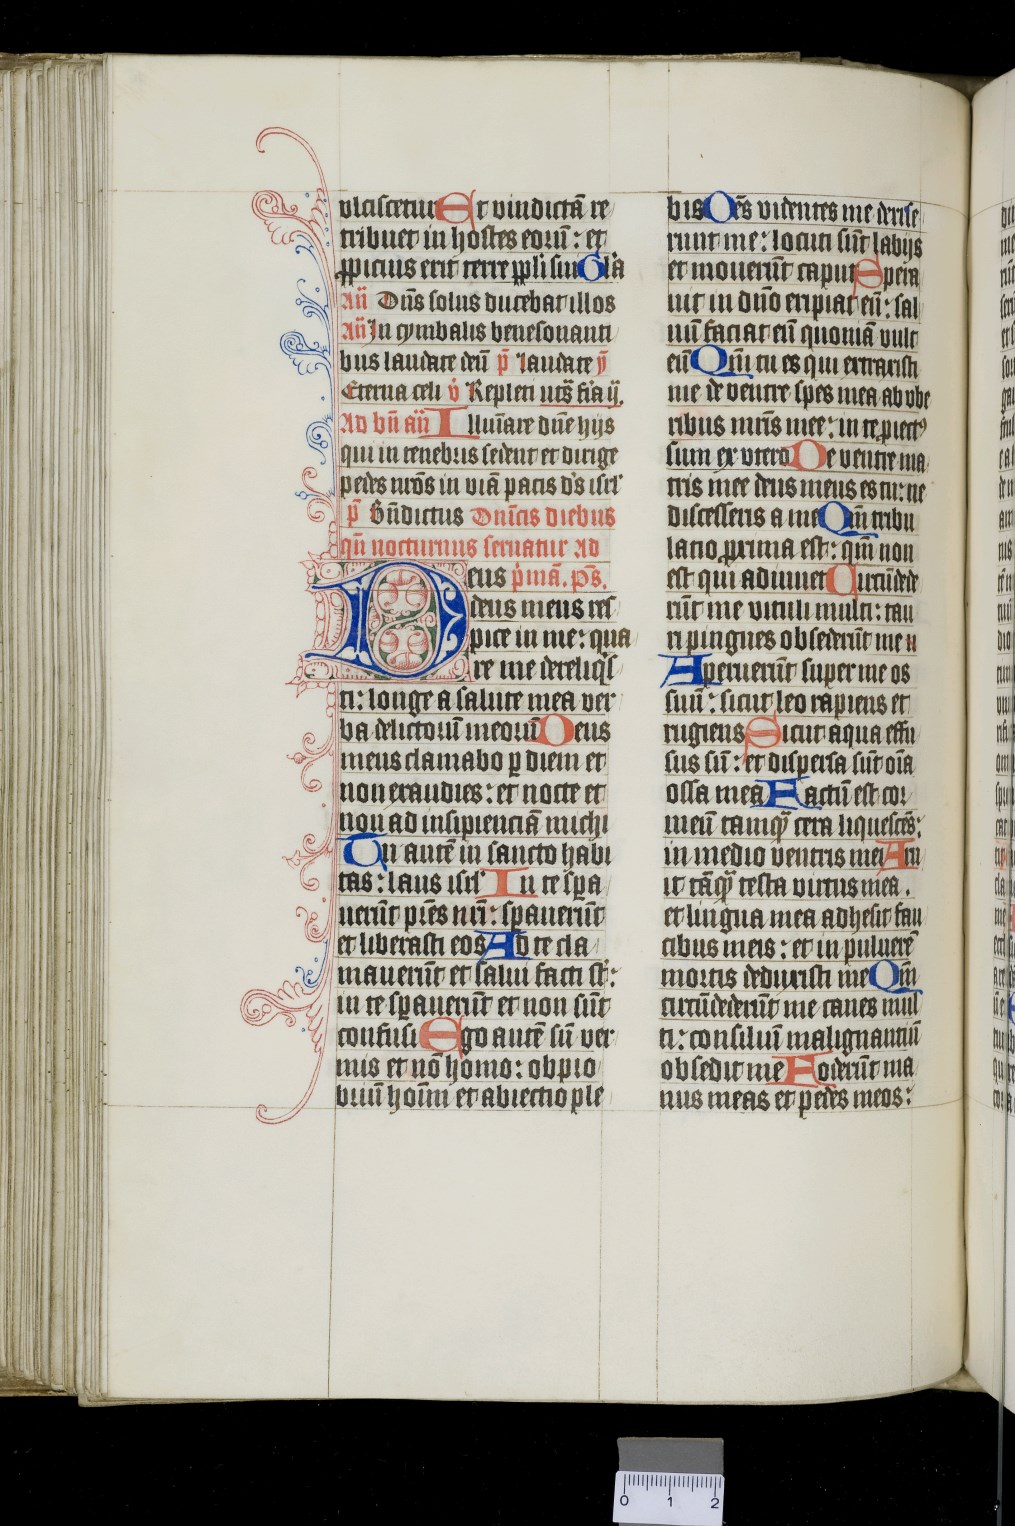 vlciscetur Et vindictā re
tribuet in hostes eorū : et
ꝓpicius erit terre ppli sui Glā
Añ Dūs solus ducebat illos
Añ In cymbalis benesonanti
bus laudate deū p̄ laudate ȳ
Eterna celi v̇ Repleti
Ad bñ añ Illumīare dūe hijs
qui in tenebris sedent et dirige
pedes nr̄os in viā pacis ds isrl
p̄ Bn̄dictus Dnīcis diebus
qn̄ nocturnus seruatur Ad
Deus p̄mā . pš.
deus meus res
pice in me : qua
re me dereliqⁱs
ti : longe a salute mea ver
ba delictorū meorū Deus
meus clamabo ꝑ diem et
non exaudies : et nocte et
non ad insipienciā michi
Tu autē in sancto habi
tas : laus isrl In te spa
uerūt pr̄es nrī : spauerūt
et liberasti eos Ad te cla
mauerūt et salui facti st̄ :
in te spauerūt et non sūt
confusi Ego autē sū ver
mis et nō homo : obprio
briū hoīm et abiectio ple
bis Om̄s videntes me derise
runt me : locuti sūt labijs
et mouerūt caput Spera
uit in dūo eripiat eū : sal
uū faciat eū quoniā vult
eū Qm̄ tu es qui extraxisti
me de ventre spes mea ab vbe
ribus mr̄is mee : in te ꝓiectꝰ
sum ex vtero De ventre ma
tris mee deus meus es tu : ne
discesseris a me Qm̄ tribu
latio proxima est : qm̄ non
est qui adiuuet Circūdede
rūt me vituli multi : tau
ri pingues obsederūt me
Aperuerūt super me os
suū : sicut leo rapiens et
rugiens Sicut aqua effu
sus sū : et dispersa sūt oīa
ossa mea Factū est cor
meū tamqꝫ cera liquescēs :
in medio ventris mei Aru
it tāqꝫ testa virtus mea .
et lingua mea adhesit fau
cibus meis : et in puluerē
mortis deduxisti me Qm̄
circūdederūt me canes mul
ti : consiliū malignantiū
obsedit me Foderūt ma
nus meas et pedes meos :
0 1 2